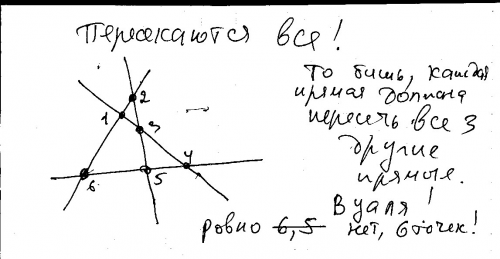 Пересекаются все!
То бишь, каждая
прямая должна
пересечь все 3
другие
прямые.
Вуаля!
ровно 6,5 нет, 6 точек!
1
2
3
4
5
6